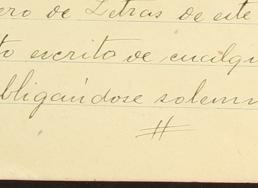 ero de Letras de este
to escrito de cualqu
bligandose solemn